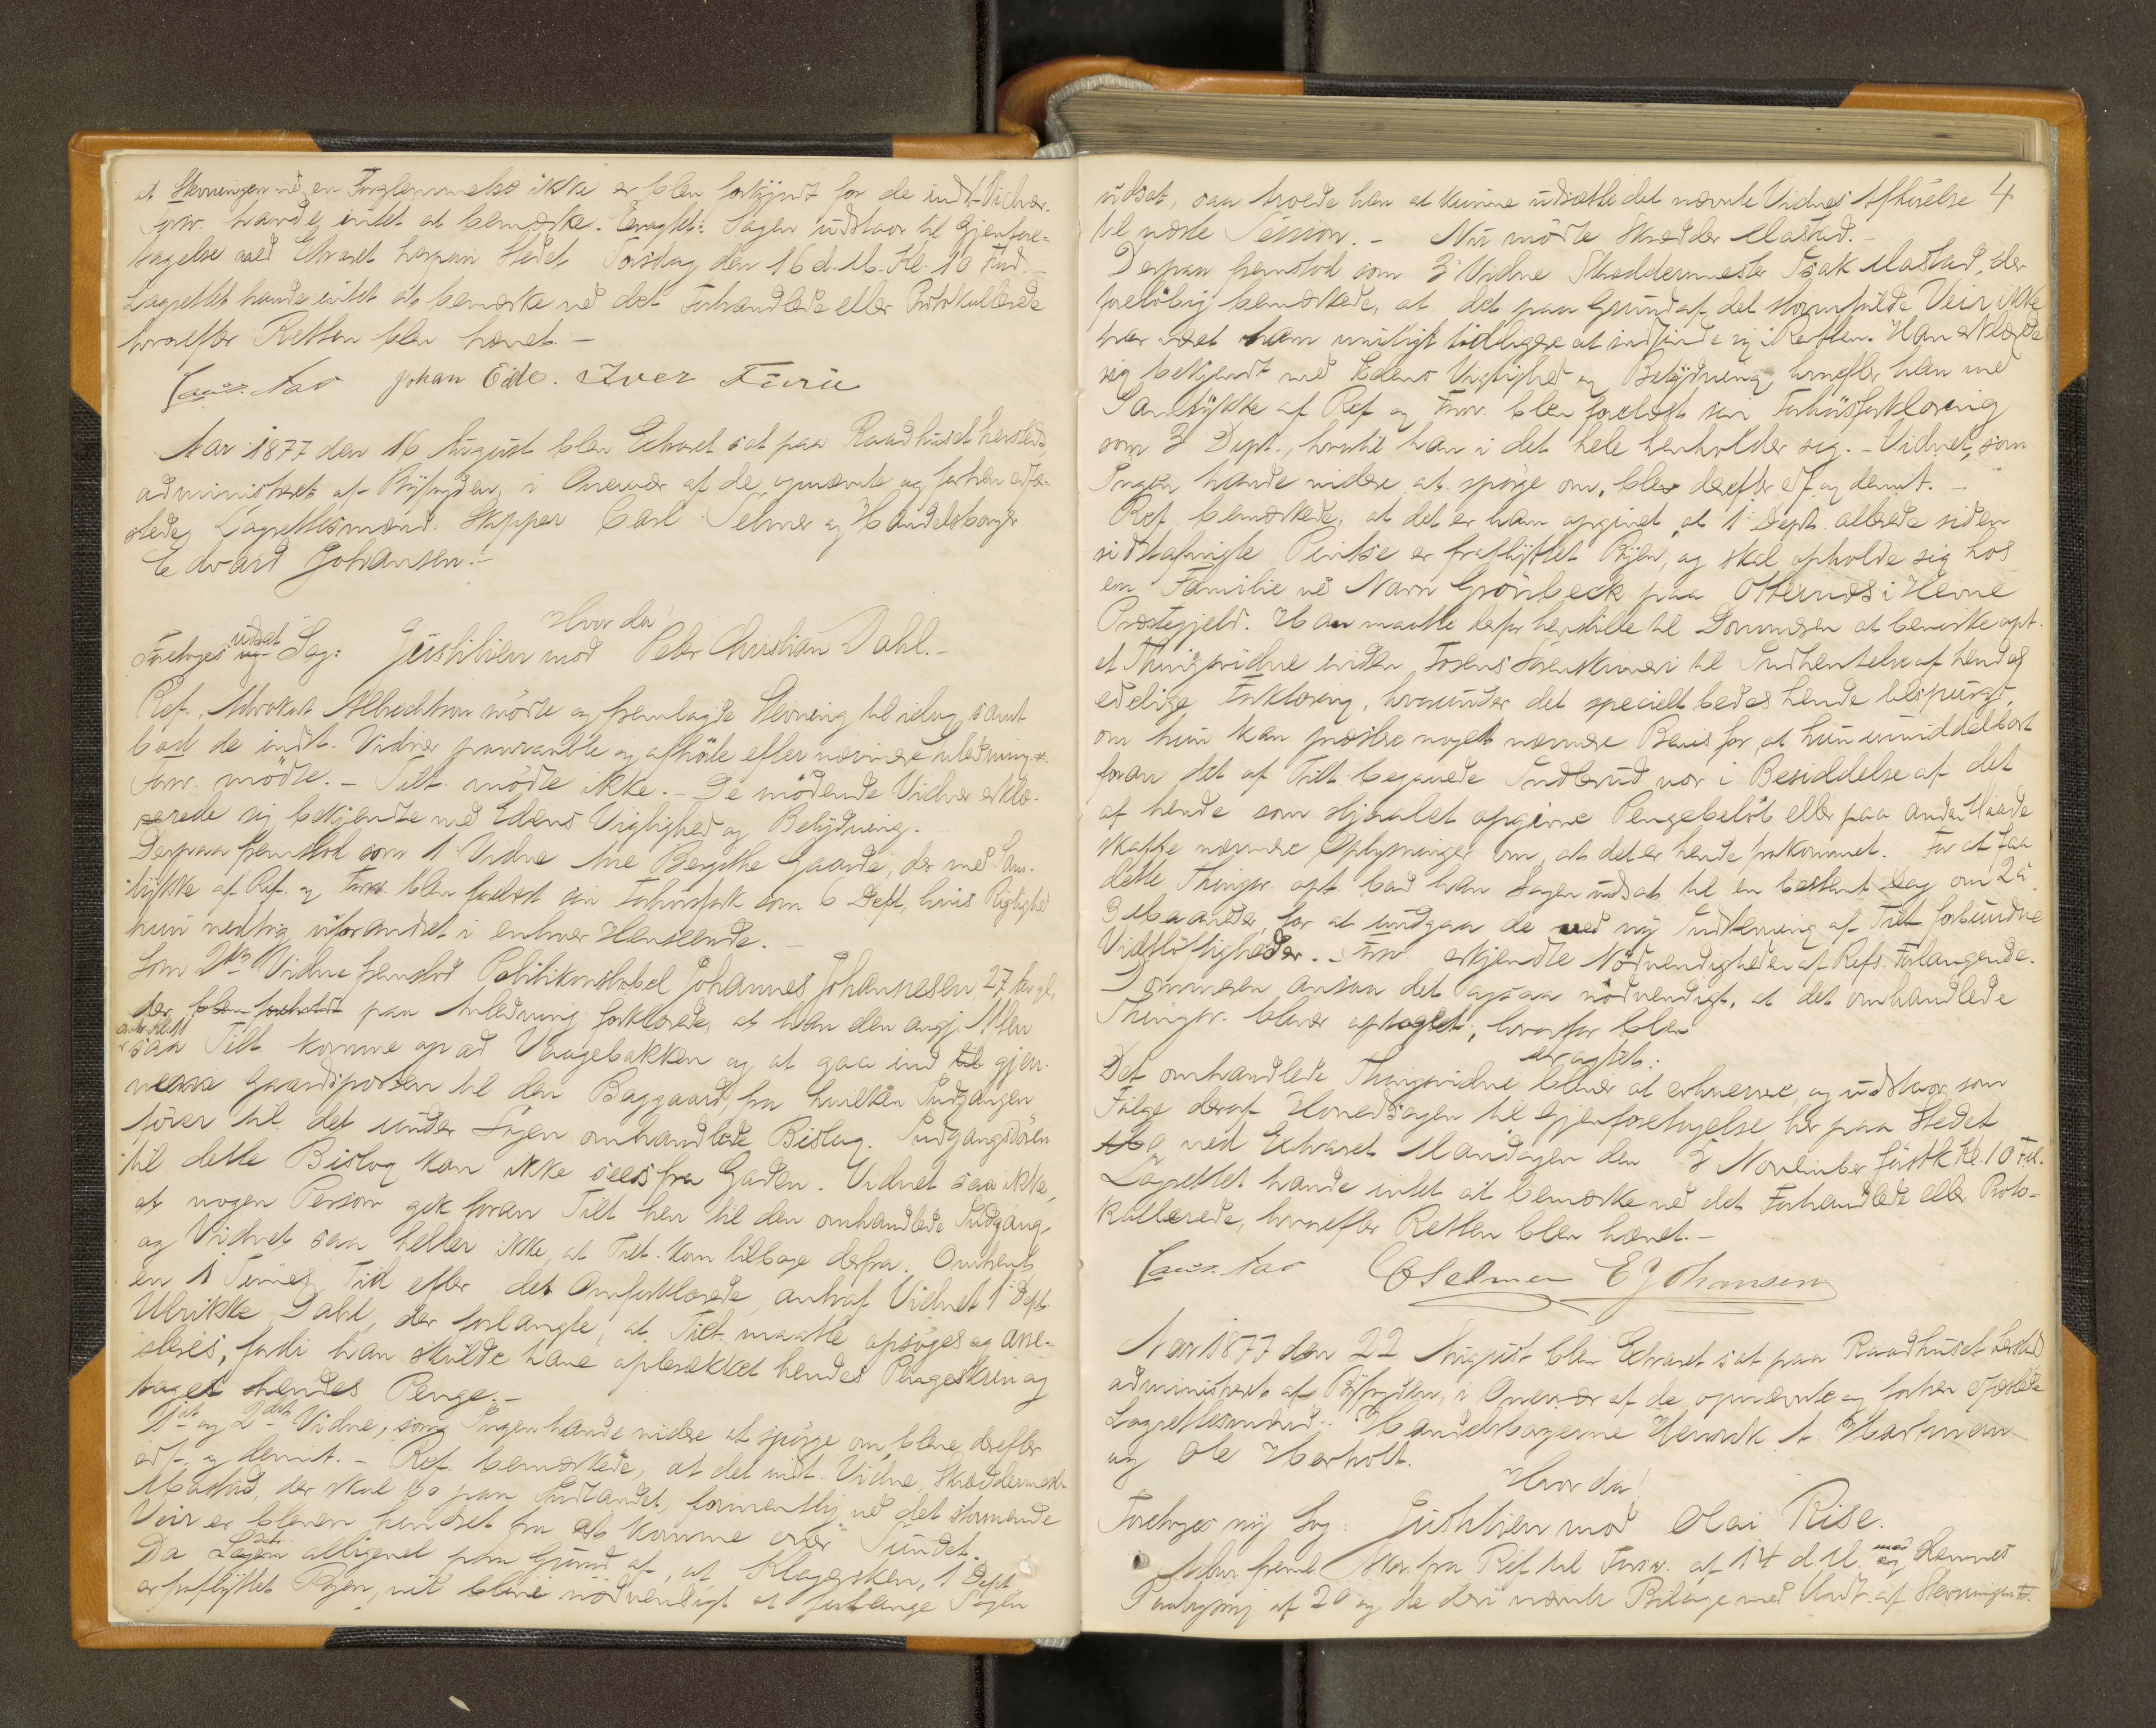 at Stevningen ved en Forglemmelse ikke er blev forkyndt for de indst. Vidner.
Forsv. havde intet at bemærke. Eragtet: Sagen udstaar til Gjenfore-
tagelse ved Extraret herpaa Stedet Torsdag den 16 d. M. Kl. 10 Fmd. -
Lagrettet havde intet at bemærke ved det Forhandlede eller Protokollerede
hvorefter Retten blev hævet. -
Johan Eide. Iver Furu
Aar 1877 den 16 August blev Extraret sat paa Raadhuset hersteds,
administreret af Byfogden, i Overvær af de opnævnte og forhen edfæ-
stede Lagrettesmænd: Skipper Carl Selmer og Handelsborger
Edvard Johansen. -
Hvor da
Foretoges udsat Sag: Justitien mod Peter Christian Dahl. -
Ref., Advokat Albrechtson mödte og fremlagde Stevning til idag samt
bad de indst. Vidner paaraabte og afhörte efter nærmere Anledning.
Forsv. mödte. - Tilt. mödte ikke. - De mödende Vidner erklæ-
rede sig bekjendte med Edens Vigtighed og Betydning.
Derpaa fremstod som 1 Vidne Ane Bergithe Gaarde, der med Sam-
tykke af Ref. og Forsv. blev forelæst sin Forhörsfork. som 6 Dept, hvis Rigtighed
hun vedtog uforandret i enhver Henseende. -
Som 2det Vidne fremstod Politikonstabel Johannes Johannesen, 27 Aar gl,
der blev foreholdt paa Anledning forklarede, at han den angj. Aften
saa Tilt. komme op ad Vaagebakken og at gaa ind til gjen-
nem Gaardsporten til den Baggaard, fra hvilken Indgangen
förer til det under Sagen omhandlede Bislag. Indgangsdören
til dette Bislag kan ikke sees fra Gaden. Vidnet saa ikke,
at nogen Person gik foran Tilt. hen til den omhandlede Indgang,
og Vidnet saa heller ikke, at Tilt. kom tilbage derfra. Omtrent
en 1 Times Tid efter det Omforklarede antraf Vidnet 1 Dept.
Ulrikke Dahl, der forlangte, at Tilt. maatte opsöges og arre-
steres, fordi han skulde have opbrækket hendes Pengeskrin og
taget hendes Penge. -
1ste og 2det Vidne, som Ingen havde videre at spörge om, bleve derefter
edf. og demit. - Ref. bemærkede, at det indst. Vidne, Skræddermester
Mastad, der skal bo paa Indlandet, formentlig ved det stormende
Veir er bleven hindret fra at komme over Sundet.
Da Sagen alligevel paa Grund af, at Klagersken, 1 Dept.
er fraflyttet Byen, vil blive nödvendigt at forlange Sagen
4
udsat, saa troede han at kunne udsætte det nævnte Vidnes Afhörelse
til næste Session. - Nu mödte Skrædder Mastad. -
Derpaa fremstod som 3 Vidne Skræddermester Isak Mastad, der
foreløbig bemærkede, at det paa Grund af det stormfulde Veir ikke
har været ham muligt tidligere at indfinde sig i Retten. Han erklærede
sig bekjendt med Edens Vigtighed og Betydning, hvorefter han med
Samtykke af Ref. og Forsv. blev forelæst sin Forhörsforklaring
som 3 Dept., hvortil han i det hele henholder sig. - Vidnet, som
Ingen havde videre at spörge om, blev derefter edf. og demit. -
Ref. bemærkede, at det er ham opgivet, at 1 Dept. allerede siden
sidstafvigte Pintse er fraflyttet Byen, og skal opholde sig hos
en Familie ved Navn Grönbeck paa Otternæs i Hevne
Præstegjeld. Han maatte derfor henstille til Dommeren at bevirke opt.
et Thingsvidne inden Fosens Sorenskriveri til Indhentelse af hendes
edelige Forklaring, hvorunder det specielt bedes hende tilspurgt,
om hun kan præstere noget nærmere Bevis for, at hun umiddelbart
foran det af Tilt. begaaede Indbrud var i Besiddelse af det
af hende som stjaalet opgivne Pengebelöb eller paa anden Maade
skaffe nærmere Oplysninger om, at det er hende frakommet. For at faa
dette Thingsv. opt. bad han Sagen udsat til en bestemt Dag om 2 à
3 Maaneder, for at undgaa de ved ny Indstevning af Tilt. forbundne
Vidtlöftigheder. - Forsv. erkjendte Nödvendigheden af Refs. Forlangende.
Dommeren ansaa det ogsaa nödvendigt, at det omhandlede
Thingsv. bliver optaget, hvorfor blev
eragtet:
Det omhandlede Thingsvidne bliver at erhverve, og udstaar som
Fölge deraf Hovedsagen til Gjenforetagelse her paa Stedet
ved Extraret Mandagen den 5 November förstk. Kl. 10 Fd.
Lagrettet havde intet at bemærke ved det Forhandlede eller Proto-
kollerede, hvorefter Retten blev hævet. -
C Selmer E Johansen
Aar 1877 den 22 August blev Extraret sat paa Raadhuset hersteds
administreret af Byfogden, i Overvær af de opnævnte og forhen edfæstede
Lagrettesmænd: Handelsborgerne Henrik A. Hartman
og Ole Harholt.
Hvor da!
Foretoges ny Sag: Justitien mod Olai Rise.
Adm. freml. Skr. fra Ref. til Forsv. af 14 d. M. med Hannes
Paategning af 20 og de deri nævnte Bilage med Undt. af Stevningen.